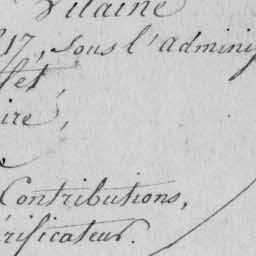 Vilaine
17, sous l'admini
fet,
ire,
e
Contributions,
érificateur.